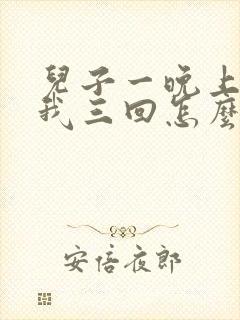 兒子一晚上
我三回怎麼
安倍夜郎